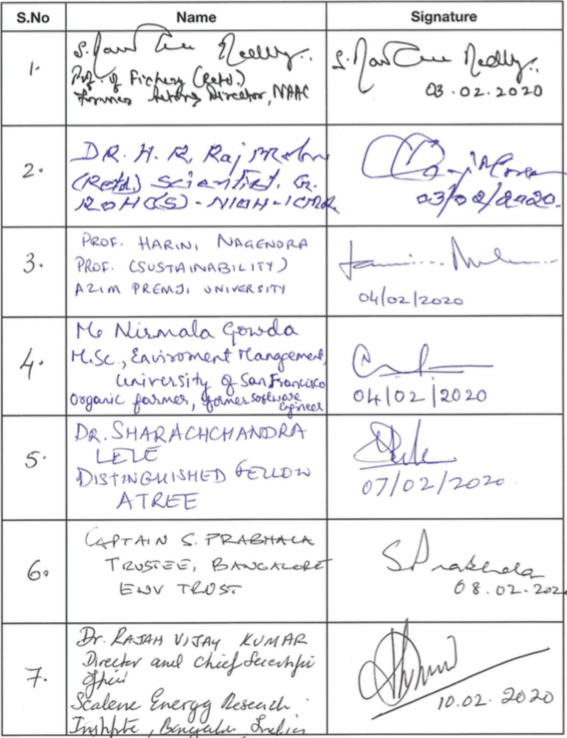 S.No Name Signature
1.
Prof. of Fishery (Retd)
Former Acting Director, NAAC
03.02.2020
2. DR. H. R. Raj Mohan
(Retd) Scientist. G.
ROHC(S) - NIOH - ICMR
03/02/2020.
3. PROF. HARINI NAGENDRA
PROF. (SUSTAINABILITY)
AZIM PREMJI UNIVERSITY
04/02/2020
4. Ms Nirmala Gowda
M.Sc, Enviroment Mangement,
University of San Francisco
Organic farmer, former software
Engineer
04/02/2020
5. DR. SHARACHCHANDRA
LELE
DISTINGUISHED FELLOW
ATREE
07/02/2020
6. CAPTAIN S. PRABHALA
TRUSTEE, BANGALORE
ENV TRUST
S Prabhala
08.02.202
7. Dr. RAJAH VIJAY KUMAR
Director and Chief Scientific
Scalene Energy Research
Institute, Bengaluru, India
10.02.2020